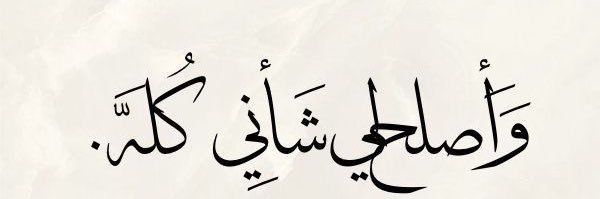 وَأصلحلي شَأنِي كُلهَّ.